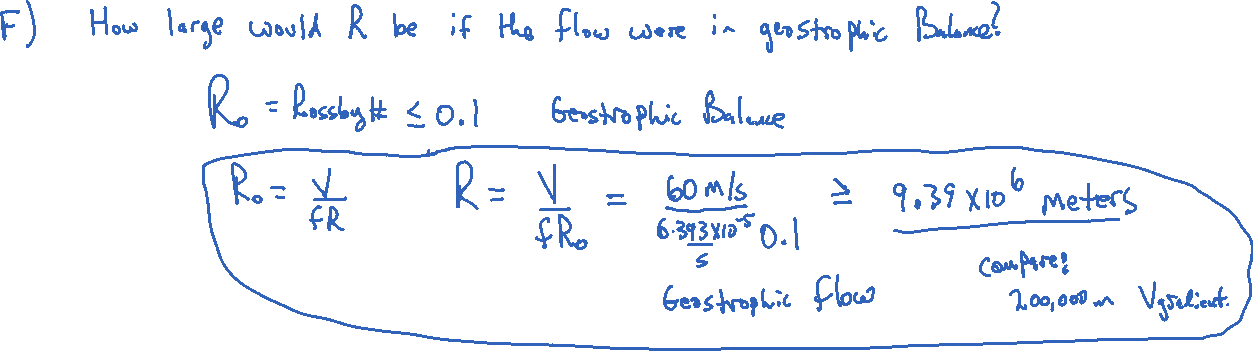 F) How large would R be if the flow were in geostrophic Balance?
Ro = Rossby# ≤ 0.1 Geostrophic Balance
Ro = V/fR R = V/fRo = 60 m/s / 6.393x10^-5/s 0.1 ≥ 9.39 x10^6 meters
Geostrophic flow
Compare!
200,000 m Vgradient.